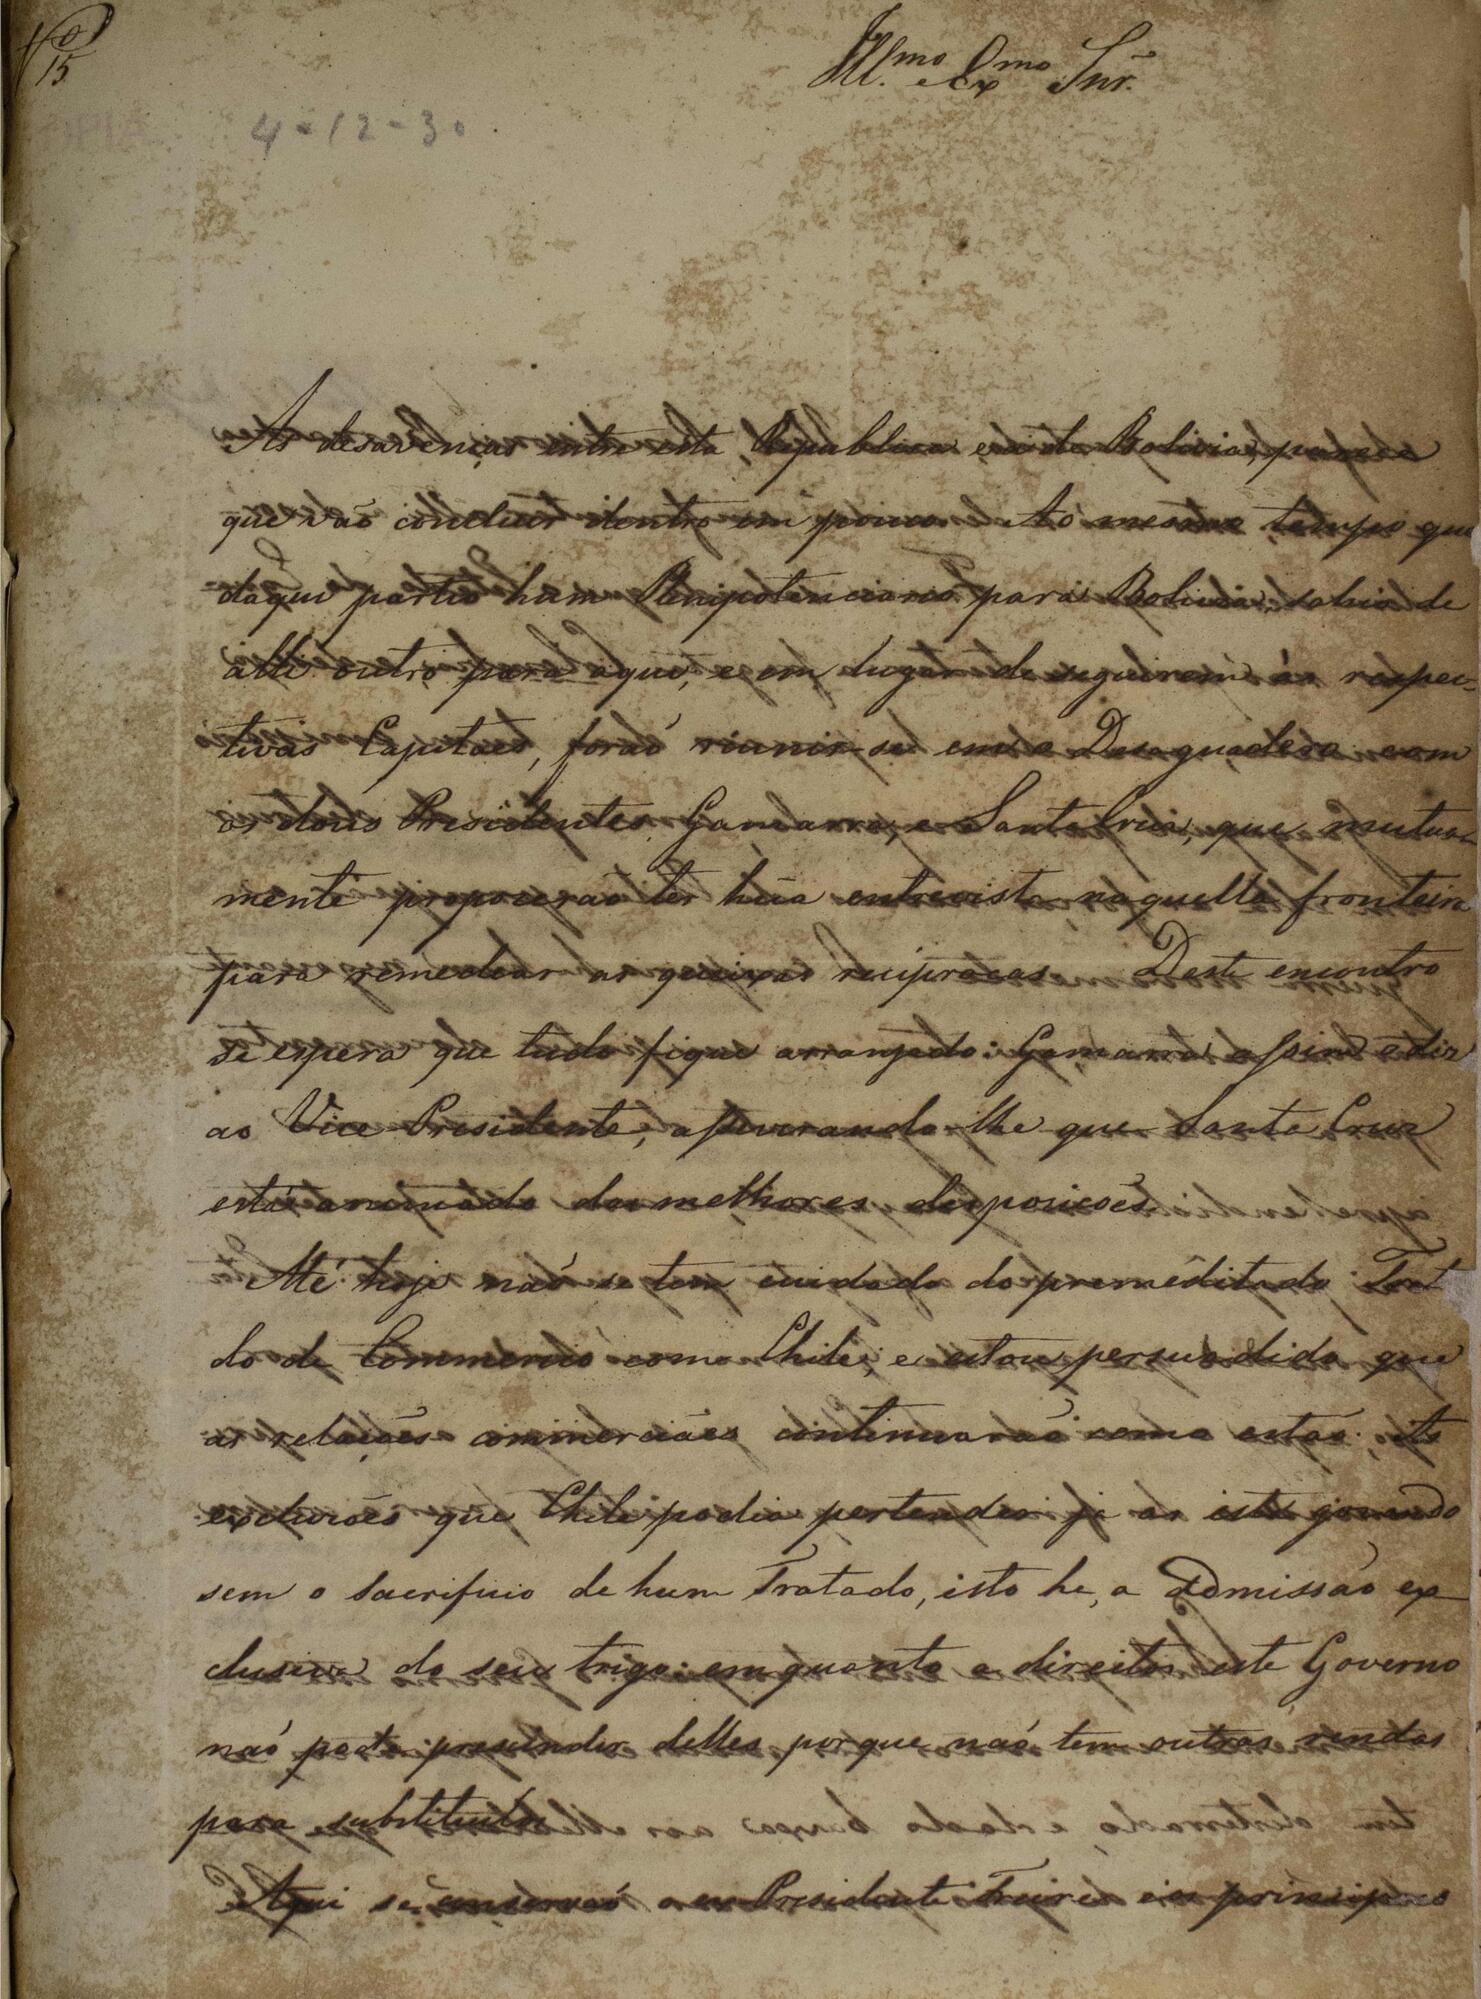 Nº 15
Ill.mo e Ex.mo Snr.
4-12-30
As desavenças entre esta Republica e a de Bolivia, parece
que vão concluir dentro em pouco. Ao mesmo tempo que
daqui partio hum Plenipotenciario para Bolivia, sahio de
alli outro para aqui, e em lugar de seguirem ás respec-
tivas Capitaes, foraõ riunir-se em o Desaguadero com
os dous Presidentes Gamarra, e Santa Cruz, que mutua-
mente propozeraõ ter hũa entrevista naquella fronteira
para remediar as queixas reciprocas. Deste encontro
se espera que tudo fique arranjado: Gamarra assim o diz
ao Vice Presidente, asseverando-lhe que Santa Cruz
está animado das melhores disposicoẽs.
Até hoje naõ se tem cuidado do premeditado Trat
do de Commercio com o Chile, e estou persuadido que
as relaçoẽs commerciaẽs continuaraõ como estaõ; As
exclusoẽs que Chile podia pertender já as está gozando
sem o sacrificio de hum Tratado, isto he, a admissaõ ex-
clusiva do seu trigo: em quanto a direitos este Governo
naõ pode prescindir delles, porque naõ tem outras rendas
para substituilos.
Aqui se conservaõ o ex Presidente Freire e os principaes